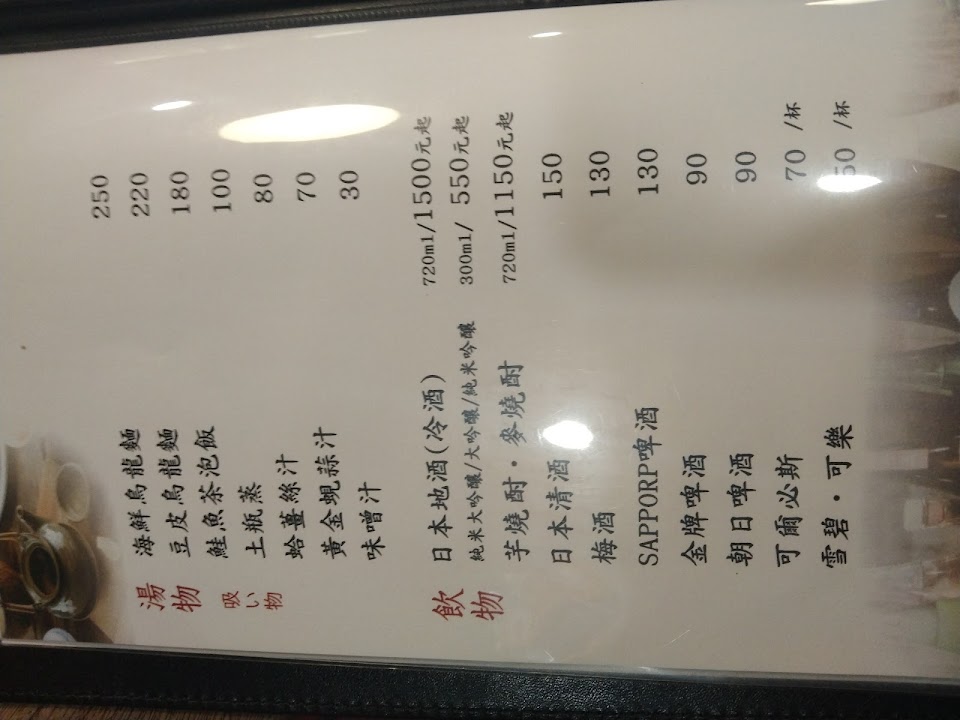 湯物
吸い物
海鮮烏龍麵 250
豆皮烏龍麵 220
鮭魚茶泡飯 180
土瓶蒸 100
蛤薑絲汁 80
黃金蜆蒜汁 70
味噌汁 30
飲物
日本地酒(冷酒) 720ml/1500元起
純米大吟釀/大吟釀/純米吟釀 300ml/ 550元起
芋燒酎・麥燒酎 720ml/1150元起
日本清酒 150
梅酒 130
SAPPORP啤酒 130
金牌啤酒 90
朝日啤酒 90
可爾必斯 70 /杯
雪碧・可樂 50 /杯